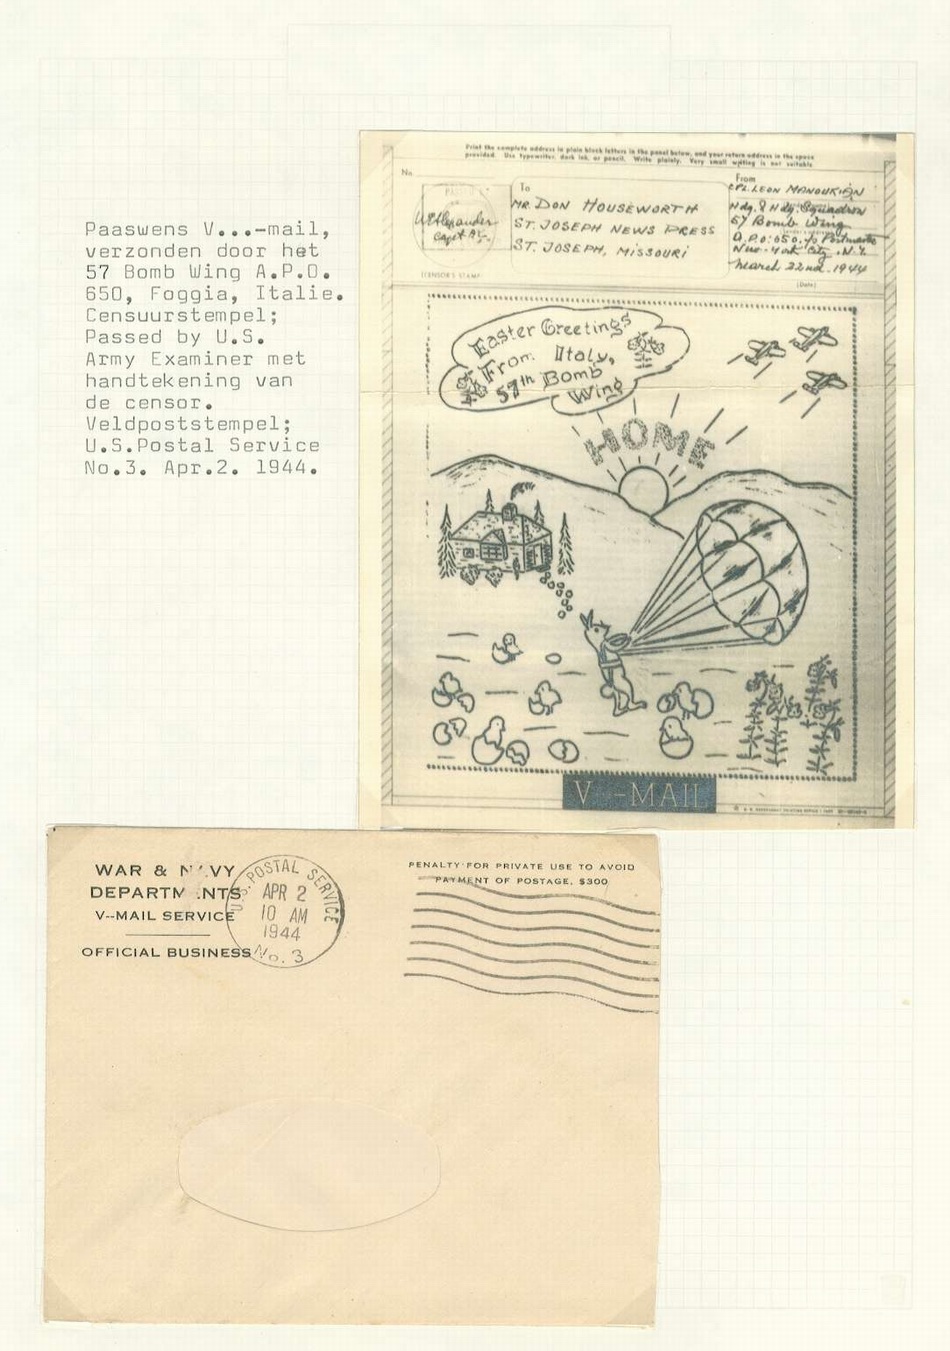 Paaswens V...-mail,
verzonden door het
57 Bomb Wing A.P.O.
650, Foggia, Italie.
Censuurstempel;
Passed by U.S.
Army Examiner met
handtekening van
de censor.
Veldpoststempel;
U.S.Postal Service
No.3. Apr.2. 1944.
Print the complete address in plain block letters in the panel below, and your return address in the space
provided. Use typewriter, dark ink, or pencil. Write plainly. Very small writing is not suitable
No.
Capt
(CENSOR'S STAMP
To
MR. DON HOUSEWORTH
ST. JOSEPH NEWS PRESS
ST. JOSEPH, MISSOURI
From
CPL. LEON MANOUKIAN
Hdq. & Hdq. Squadron
57 Bomb Wing
A.P.O. 650, % Postmaster
New York City, N.Y.
March 22nd. 1944
(Date)
Easter Greetings
From Italy,
57th Bomb
Wing
HOME
V--MAIL
WAR & N VY
DEPARTM NTS
V--MAIL SERVICE
OFFICIAL BUSINESS
U.S. POSTAL SERVICE
APR 2
10 AM
1944
No. 3
PENALTY FOR PRIVATE USE TO AVOID
PAYMENT OF POSTAGE, $300